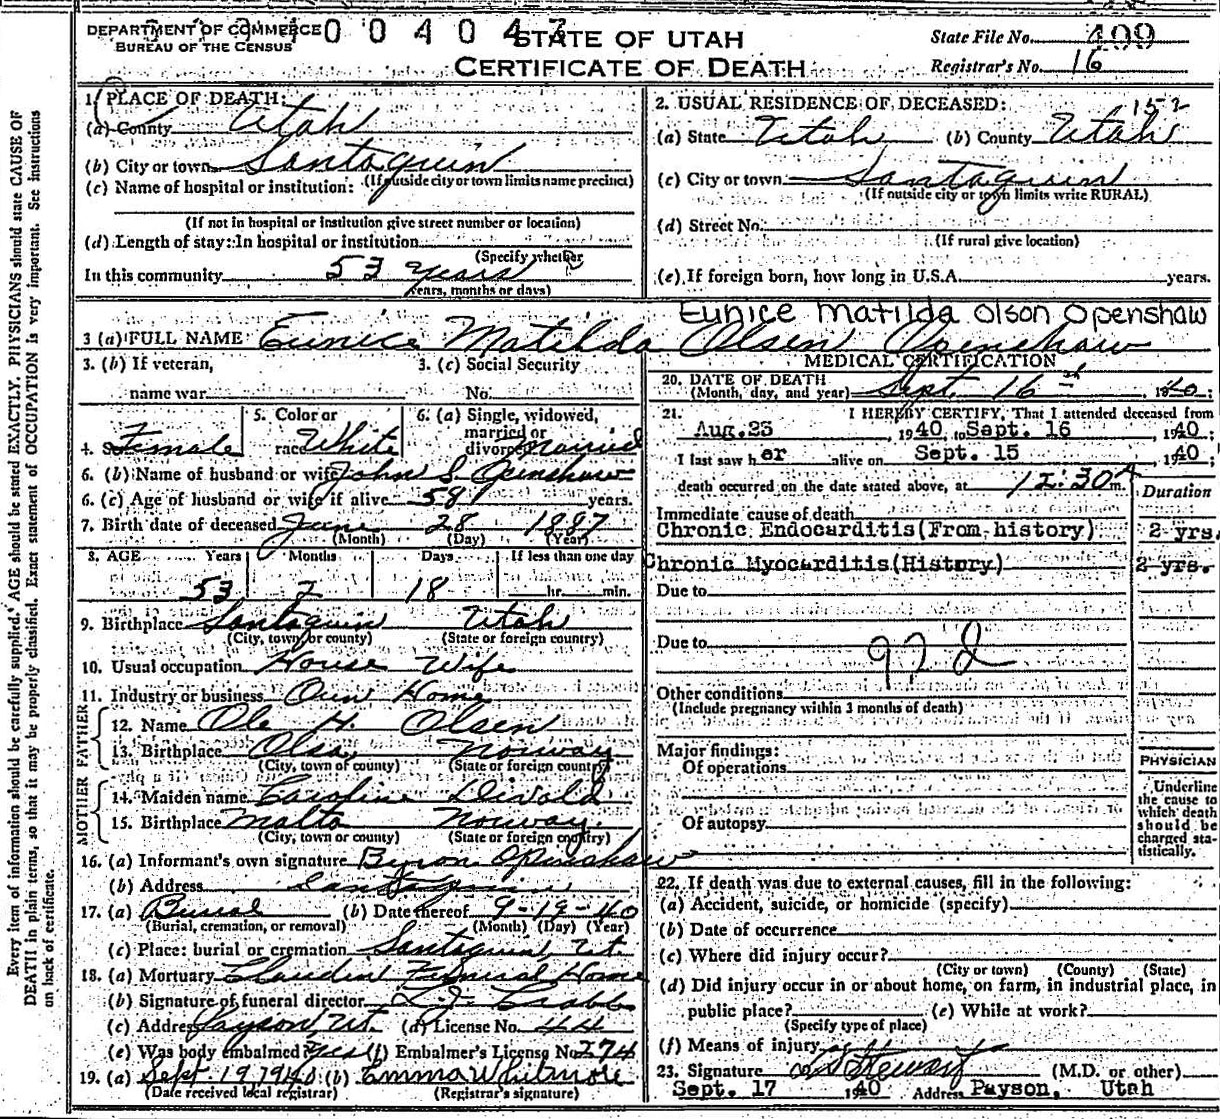 DEPARTMENT OF COMMERCE
BUREAU OF THE CENSUS
0 0 4 0 4
STATE OF UTAH
CERTIFICATE OF DEATH
State File No. 499
Registrar's No. 16
Every item of information should be carefully supplied. AGE should be stated EXACTLY. PHYSICIANS should state CAUSE OF
DEATH in plain terms, so that it may be properly classified. Exact statement of OCCUPATION is very important. See instructions
on back of certificate.
1. PLACE OF DEATH:
(a) County Utah
(b) City or town Santaquin
(If outside city or town limits name precinct)
(c) Name of hospital or institution:
(If not in hospital or institution give street number or location)
(d) Length of stay: In hospital or institution
(Specify whether
In this community 53 years
years, months or days)
2. USUAL RESIDENCE OF DECEASED: 152
(a) State Utah (b) County Utah
(c) City or town Santaquin
(If outside city or town limits write RURAL)
(d) Street No.
(If rural give location)
(e) If foreign born, how long in U.S.A. years.
Eunice Matilda Olson Openshaw
3 (a) FULL NAME Eunice Matilda Olsen Openshaw
3. (b) If veteran, 3. (c) Social Security
name war No.
5. Color or 6. (a) Single, widowed,
married or
4. Sex Female race White divorced Married
6. (b) Name of husband or wife John S. Openshaw
6. (c) Age of husband or wife if alive 58 years.
7. Birth date of deceased June 28 1887
(Month) (Day) (Year)
8. AGE Years Months Days If less than one day
53 2 18 hr. min.
9. Birthplace Santaquin Utah
(City, town or county) (State or foreign country)
10. Usual occupation House Wife
11. Industry or business Own Home
FATHER
12. Name Ole H. Olsen
13. Birthplace Norway
(City, town or county) (State or foreign country)
MOTHER
14. Maiden name Caroline
15. Birthplace Malta Norway.
(City, town or county) (State or foreign country)
16. (a) Informant's own signature Byron Openshaw
(b) Address Santaquin
17. (a) Burial (b) Date thereof 9-19-40
(Burial, cremation, or removal) (Month) (Day) (Year)
(c) Place: burial or cremation Santaquin, Ut.
18. (a) Mortuary Claudin Funeral Home
(b) Signature of funeral director L.J. Crabb
(c) Address Payson Ut. (d) License No. 44
(e) Was body embalmed? yes (f) Embalmer's License No. 274
19. (a) Sept 19 1940 (b) Emma Whitmore
(Date received local registrar) (Registrar's signature)
MEDICAL CERTIFICATION
20. DATE OF DEATH
(Month, day, and year) Sept. 16th 1940;
21. I HEREBY CERTIFY, That I attended deceased from
Aug. 23, 1940, to Sept. 16, 1940;
I last saw her alive on Sept. 15, 1940;
death occurred on the date stated above, at 12:30 A m.
Duration
Immediate cause of death
Chronic Endocarditis (From history) 2 yrs.
Chronic Myocarditis (History) 2 yrs.
Due to
Due to
Other conditions
(Include pregnancy within 3 months of death)
Major findings:
Of operations
Of autopsy
PHYSICIAN
Underline
the cause to
which death
should be
charged sta-
tistically.
22. If death was due to external causes, fill in the following:
(a) Accident, suicide, or homicide (specify)
(b) Date of occurrence
(c) Where did injury occur?
(City or town) (County) (State)
(d) Did injury occur in or about home, on farm, in industrial place, in
public place? (e) While at work?
(Specify type of place)
(f) Means of injury
23. Signature Stewart (M.D. or other)
Sept. 17 1940 Address Payson, Utah